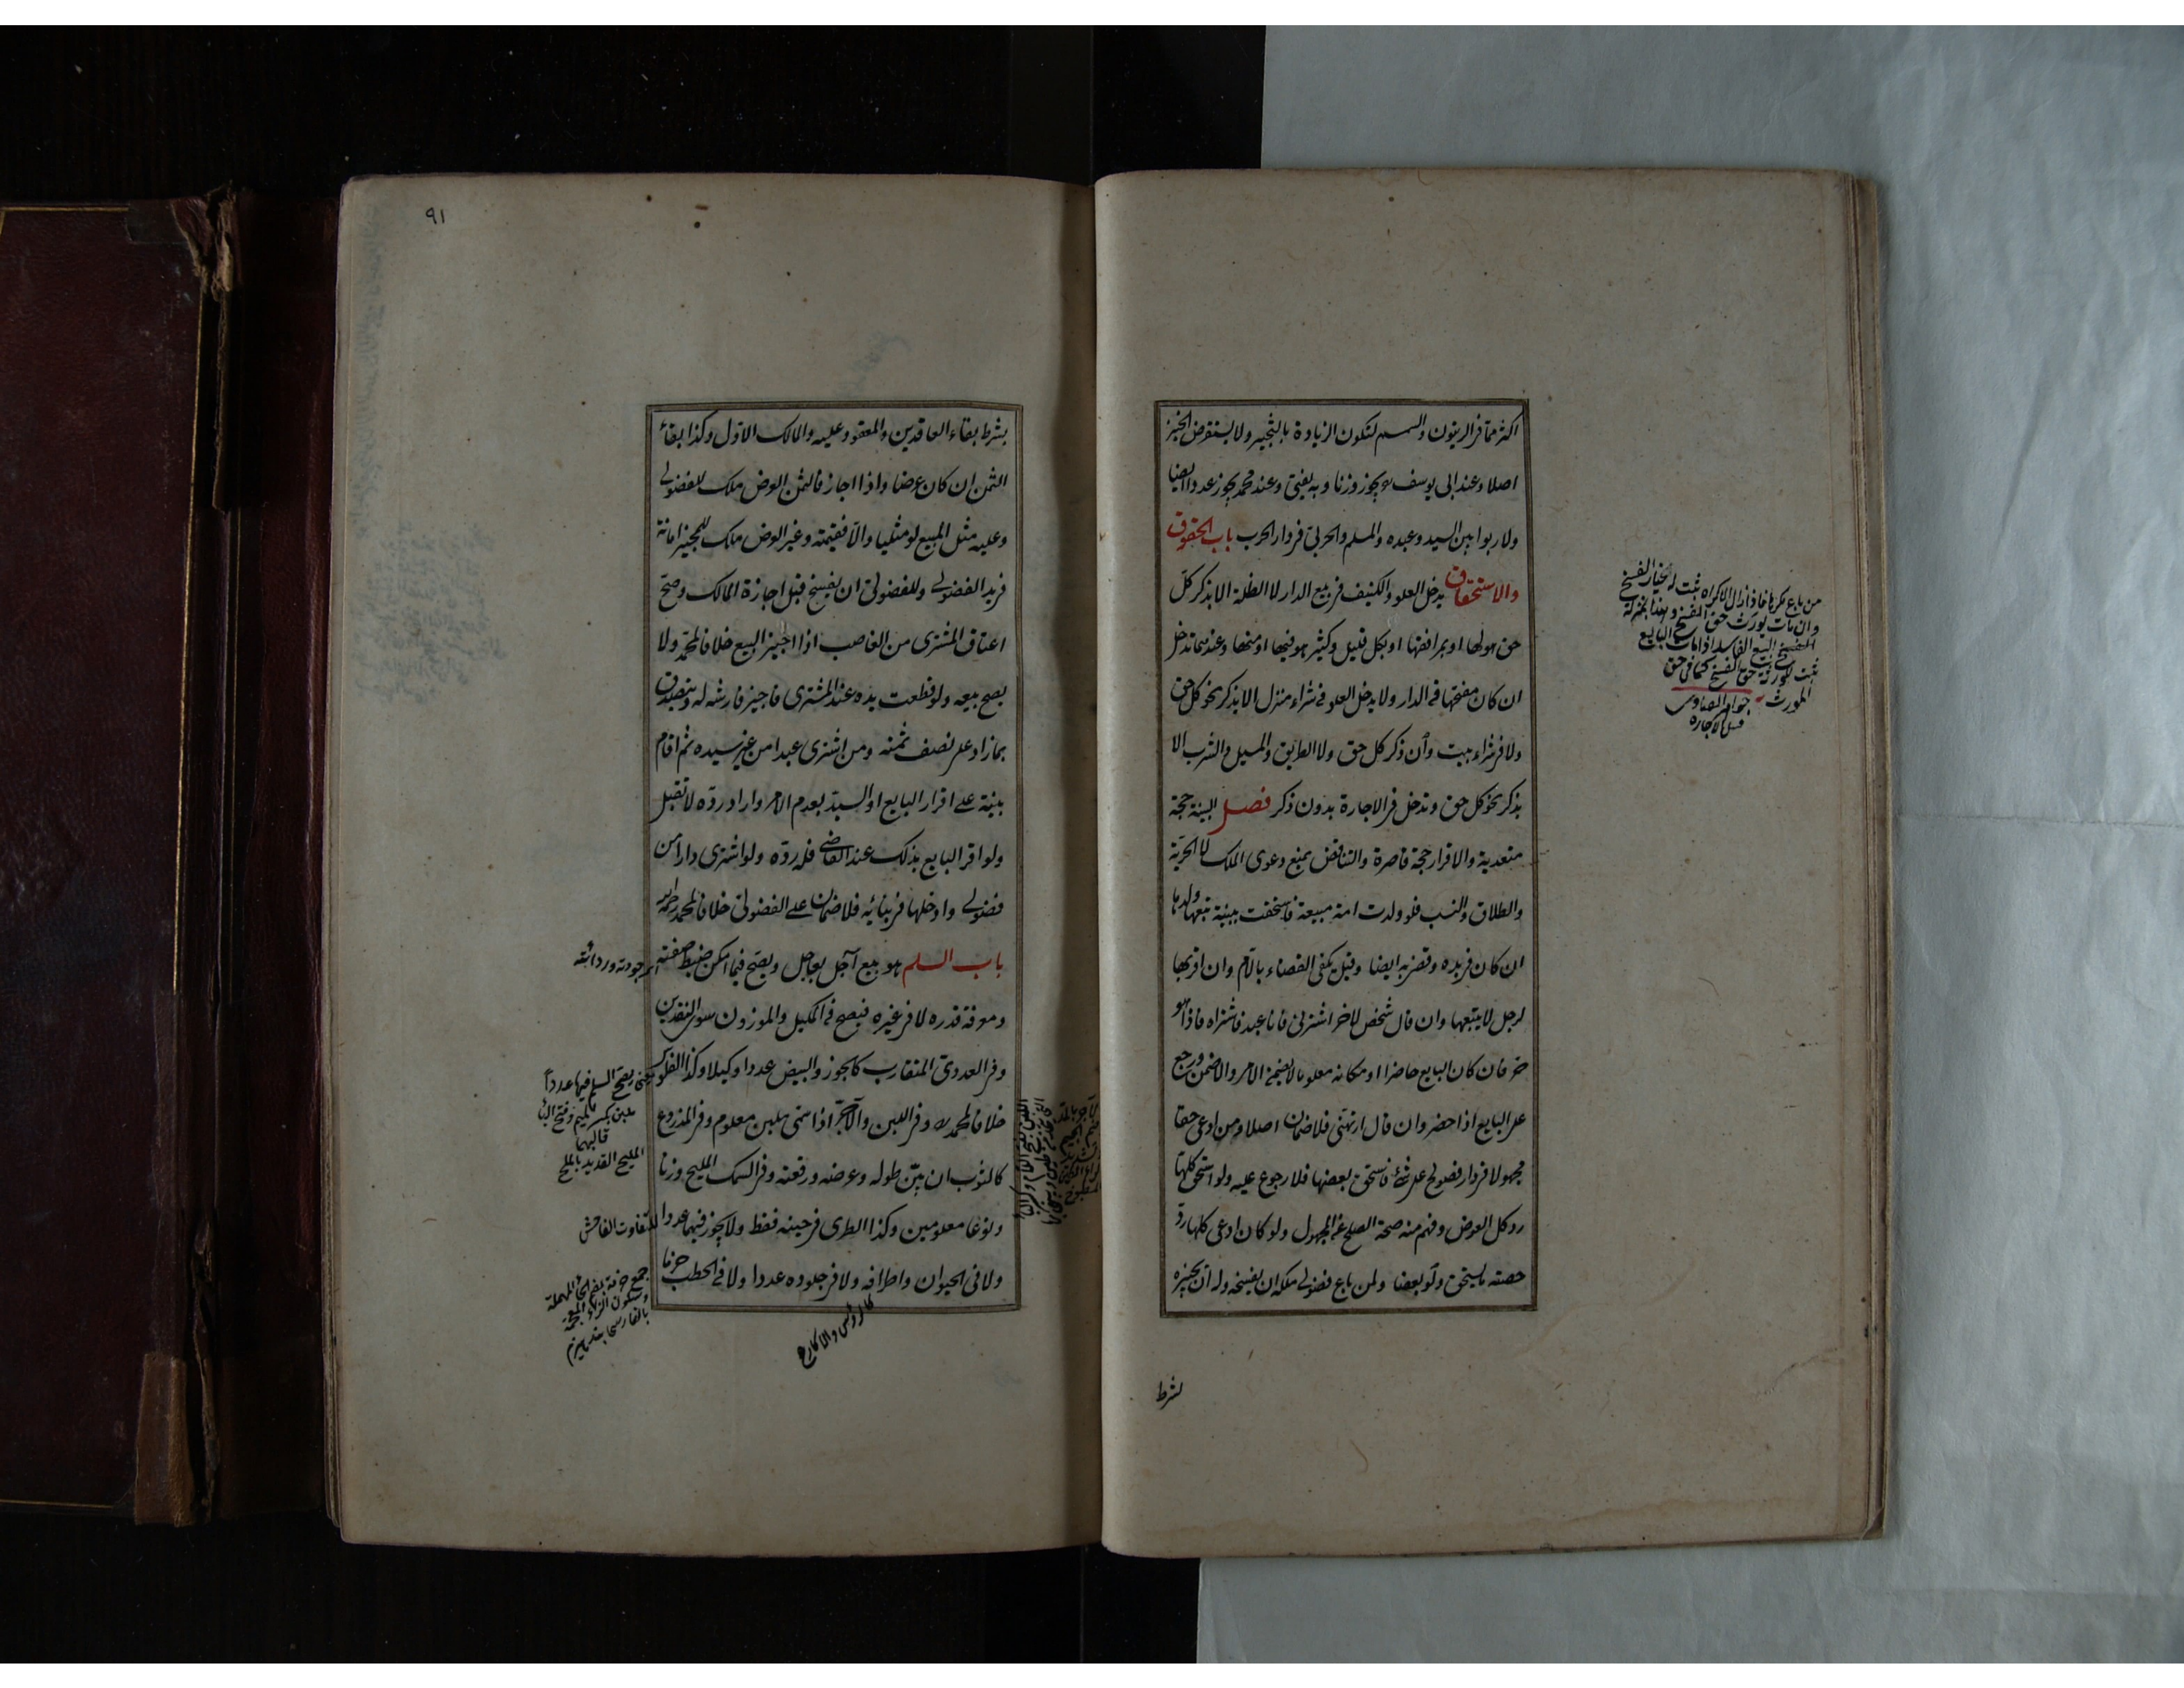 اكثر مما فى الزيتون والسمسم لتكون الزيادة بالثجير ولا يستقرض الخبز
اصلا وعند ابى يوسف يجوز وزنا وبه يفتى وعند محمد يجوز عددا ايضا
ولا ربوا بين السيد وعبده والمسلم والحربى فى دار الحرب باب الحقوق
والاستحقاق يدخل العلو والكنيف فى بيع الدار لا الظلة الا بذكر كل
حق هو لها او بمرافقها او بكل قليل وكثير هو فيها او منها وعندهما تدخل
ان كان مفتحها فى الدار ولا يدخل العلو فى شراء منزل الا بذكر نحو كل حق
ولا فى شراء بيت وان ذكر كل حق ولا الطريق والمسيل والشرب الا
بذكر نحو كل حق وتدخل فى الاجارة بدون ذكر فصل البينة حجة
متعدية والاقرار حجة قاصرة والتناقض يمنع دعوى الملك لا الحرية
والطلاق والنسب فلو ولدت امة مبيعة فاستحقت ببينة تبعها ولدها
ان كان فى يده وقضى به ايضا وقيل يكفى القضاء بالام وان اقر بها
لرجل لا يتبعها وان قال شخص لاخر اشترنى فانا عبد فاشتراه فاذا هو
حر فان كان البايع حاضرا او مكانه معلوما لا يضمن الامر والا ضمن ورجع
على البايع اذا حضر وان قال ارتهنى فلا ضمان اصلا ومن ادعى حقا
مجهولا فى دار فصولح على شئ فاستحق بعضها فلا رجوع عليه ولو استحق كلها
رد كل العوض وفهم منه صحة الصلح عن المجهول ولو كان ادعى كلها رد
حصة ما يستحق ولو بعضا ولمن باع فضولى ملكه ان يفسخه وله ان يجيزه
بشرط
من باع مكرها فاذا زال الاكراه ثبت له خيار الفسخ
وان مات يورث حق الفسخ وهذا بمنزلة
الفسخ البيع الفاسد اذا مات البايع
ثبت لورثته حق الفسخ كما فى حق
المورث جواهر الفتاوى
قبيل الاجاره
٩١
بشرط بقاء العاقدين والمعقود عليه والمالك الاول وكذا بقاء
الثمن ان كان عرضا واذا اجاز فالثمن العرض ملك للفضولى
وعليه مثل المبيع لو مثليا والا فقيمته وغير العرض ملك للمجيز امانة
فى يد الفضولى وللفضولى ان يفسخ قبل اجازة المالك وصح
اعتاق المشترى من الغاصب اذا اجيز البيع خلافا لمحمد ولا
يصح بيعه ولو قطعت يده عند المشترى فاجيز فارشه له ويتصدق
بما زاد على نصف ثمنه ومن اشترى عبدا من غير سيده ثم اقام
بينة على اقرار البايع او السيد بعدم الامر واراد رده لا تقبل
ولو اقر البايع بذلك عند القاضى فله رده ولو اشترى دارا من
فضولى وادخلها فى بنائه فلا ضمان على الفضولى خلافا لمحمد رحمه الله
باب السلم هو بيع آجل بعاجل ويصح فيما امكن ضبط صفته
ومعرفة قدره لا فى غيره فيصح فى المكيل والموزون سوى النقدين
وفى العددى المتقارب كالجوز والبيض عددا وكيلا وكذا الفلوس
خلافا لمحمد وفى اللبن والآجر اذا سمى ملبن معلوم وفى المذروع
كالثوب ان بين طوله وعرضه ورقعته وفى السمك المليح وزنا
ونوعا معلومين وكذا الطرى فى حينه فقط ولا يجوز فيهما عددا
ولا فى الحيوان واطرافه ولا فى جلوده عددا ولا فى الحطب حزما
اى جودته وردائته
يعنى يصح السلم فيها عددا
ملبن بكسر الميم وفتح الباء
قالبهما
المليح القديد بالملح
للتفاوت الفاحش
جمع حزمة بضم الحاء المهملة
وسكون الزاء المعجمة
كالرؤس والاكارع